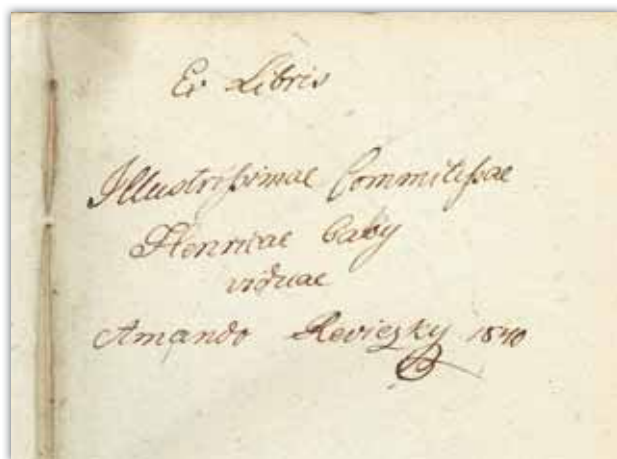 Ex Libris
Illustrissimae Commitissae
Henricae Gaby
viduae
Amando Reviczky 1840